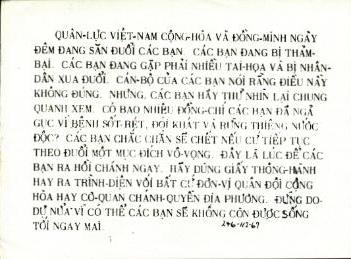 QUÂN-LỰC VIỆT-NAM CỘNG-HÒA VÀ ĐỒNG-MINH NGÀY
ĐÊM ĐANG SĂN ĐUỔI CÁC BẠN. CÁC BẠN ĐANG BỊ THẢM-
BẠI. CÁC BẠN ĐANG GẶP PHẢI NHIỀU TAI-HỌA VÀ BỊ NHÂN-
DÂN XUA ĐUỔI. CÁN-BỘ CỦA CÁC BẠN NÓI RẰNG ĐIỀU NÀY
KHÔNG ĐÚNG. NHƯNG, CÁC BẠN HÃY THỬ NHÌN LẠI CHUNG
QUANH XEM. CÓ BAO NHIÊU ĐỒNG-CHÍ CÁC BẠN ĐÃ NGÃ
GỤC VÌ BỆNH SỐT-RÉT, ĐÓI KHÁT VÀ RỪNG THIÊNG NƯỚC
ĐỘC? CÁC BẠN CHẮC CHẮN SẼ CHẾT NẾU CỨ TIẾP TỤC
THEO ĐUỔI MỘT MỤC ĐÍCH VÔ-VỌNG. ĐÂY LÀ LÚC ĐỂ CÁC
BẠN RA HỒI CHÁNH NGAY. HÃY DÙNG GIẤY THÔNG-HÀNH
HAY RA TRÌNH-DIỆN VỚI BẤT CỨ ĐƠN-VỊ QUÂN ĐỘI CỘNG
HÒA HAY CƠ-QUAN CHÁNH-QUYỀN ĐỊA PHƯƠNG. ĐỪNG DO-
DỰ NỮA VÌ CÓ THỂ CÁC BẠN SẼ KHÔNG CÒN ĐƯỢC SỐNG
TỚI NGÀY MAI.
246-112-67